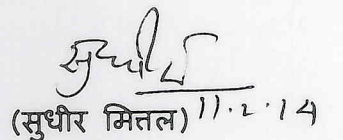 सुधीर
(सुधीर मित्तल) 11.2.14